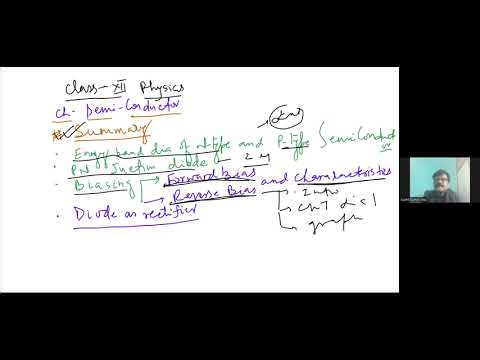 Class-XII Physics
Ch- Semi-Conductor
Summary
• Energy band dia of n-type and P-type Semiconductor
• PN Junction diode 2M
• Biasing Forward Bias
Reverse Bias and Characteristics
• Diode as rectifier
graph